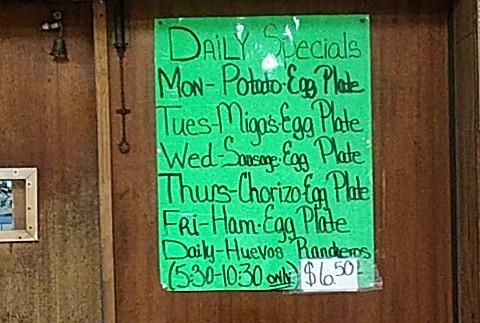 DAILY Specials
Mon- Potato-Egg Plate
Tues-Migas-Egg Plate
Wed-Sausage-Egg Plate
Thurs-Chorizo-Egg Plate
Fri-Ham-Egg Plate
Daily-Huevos Rancheros
(5:30-10:30 only) $6.50